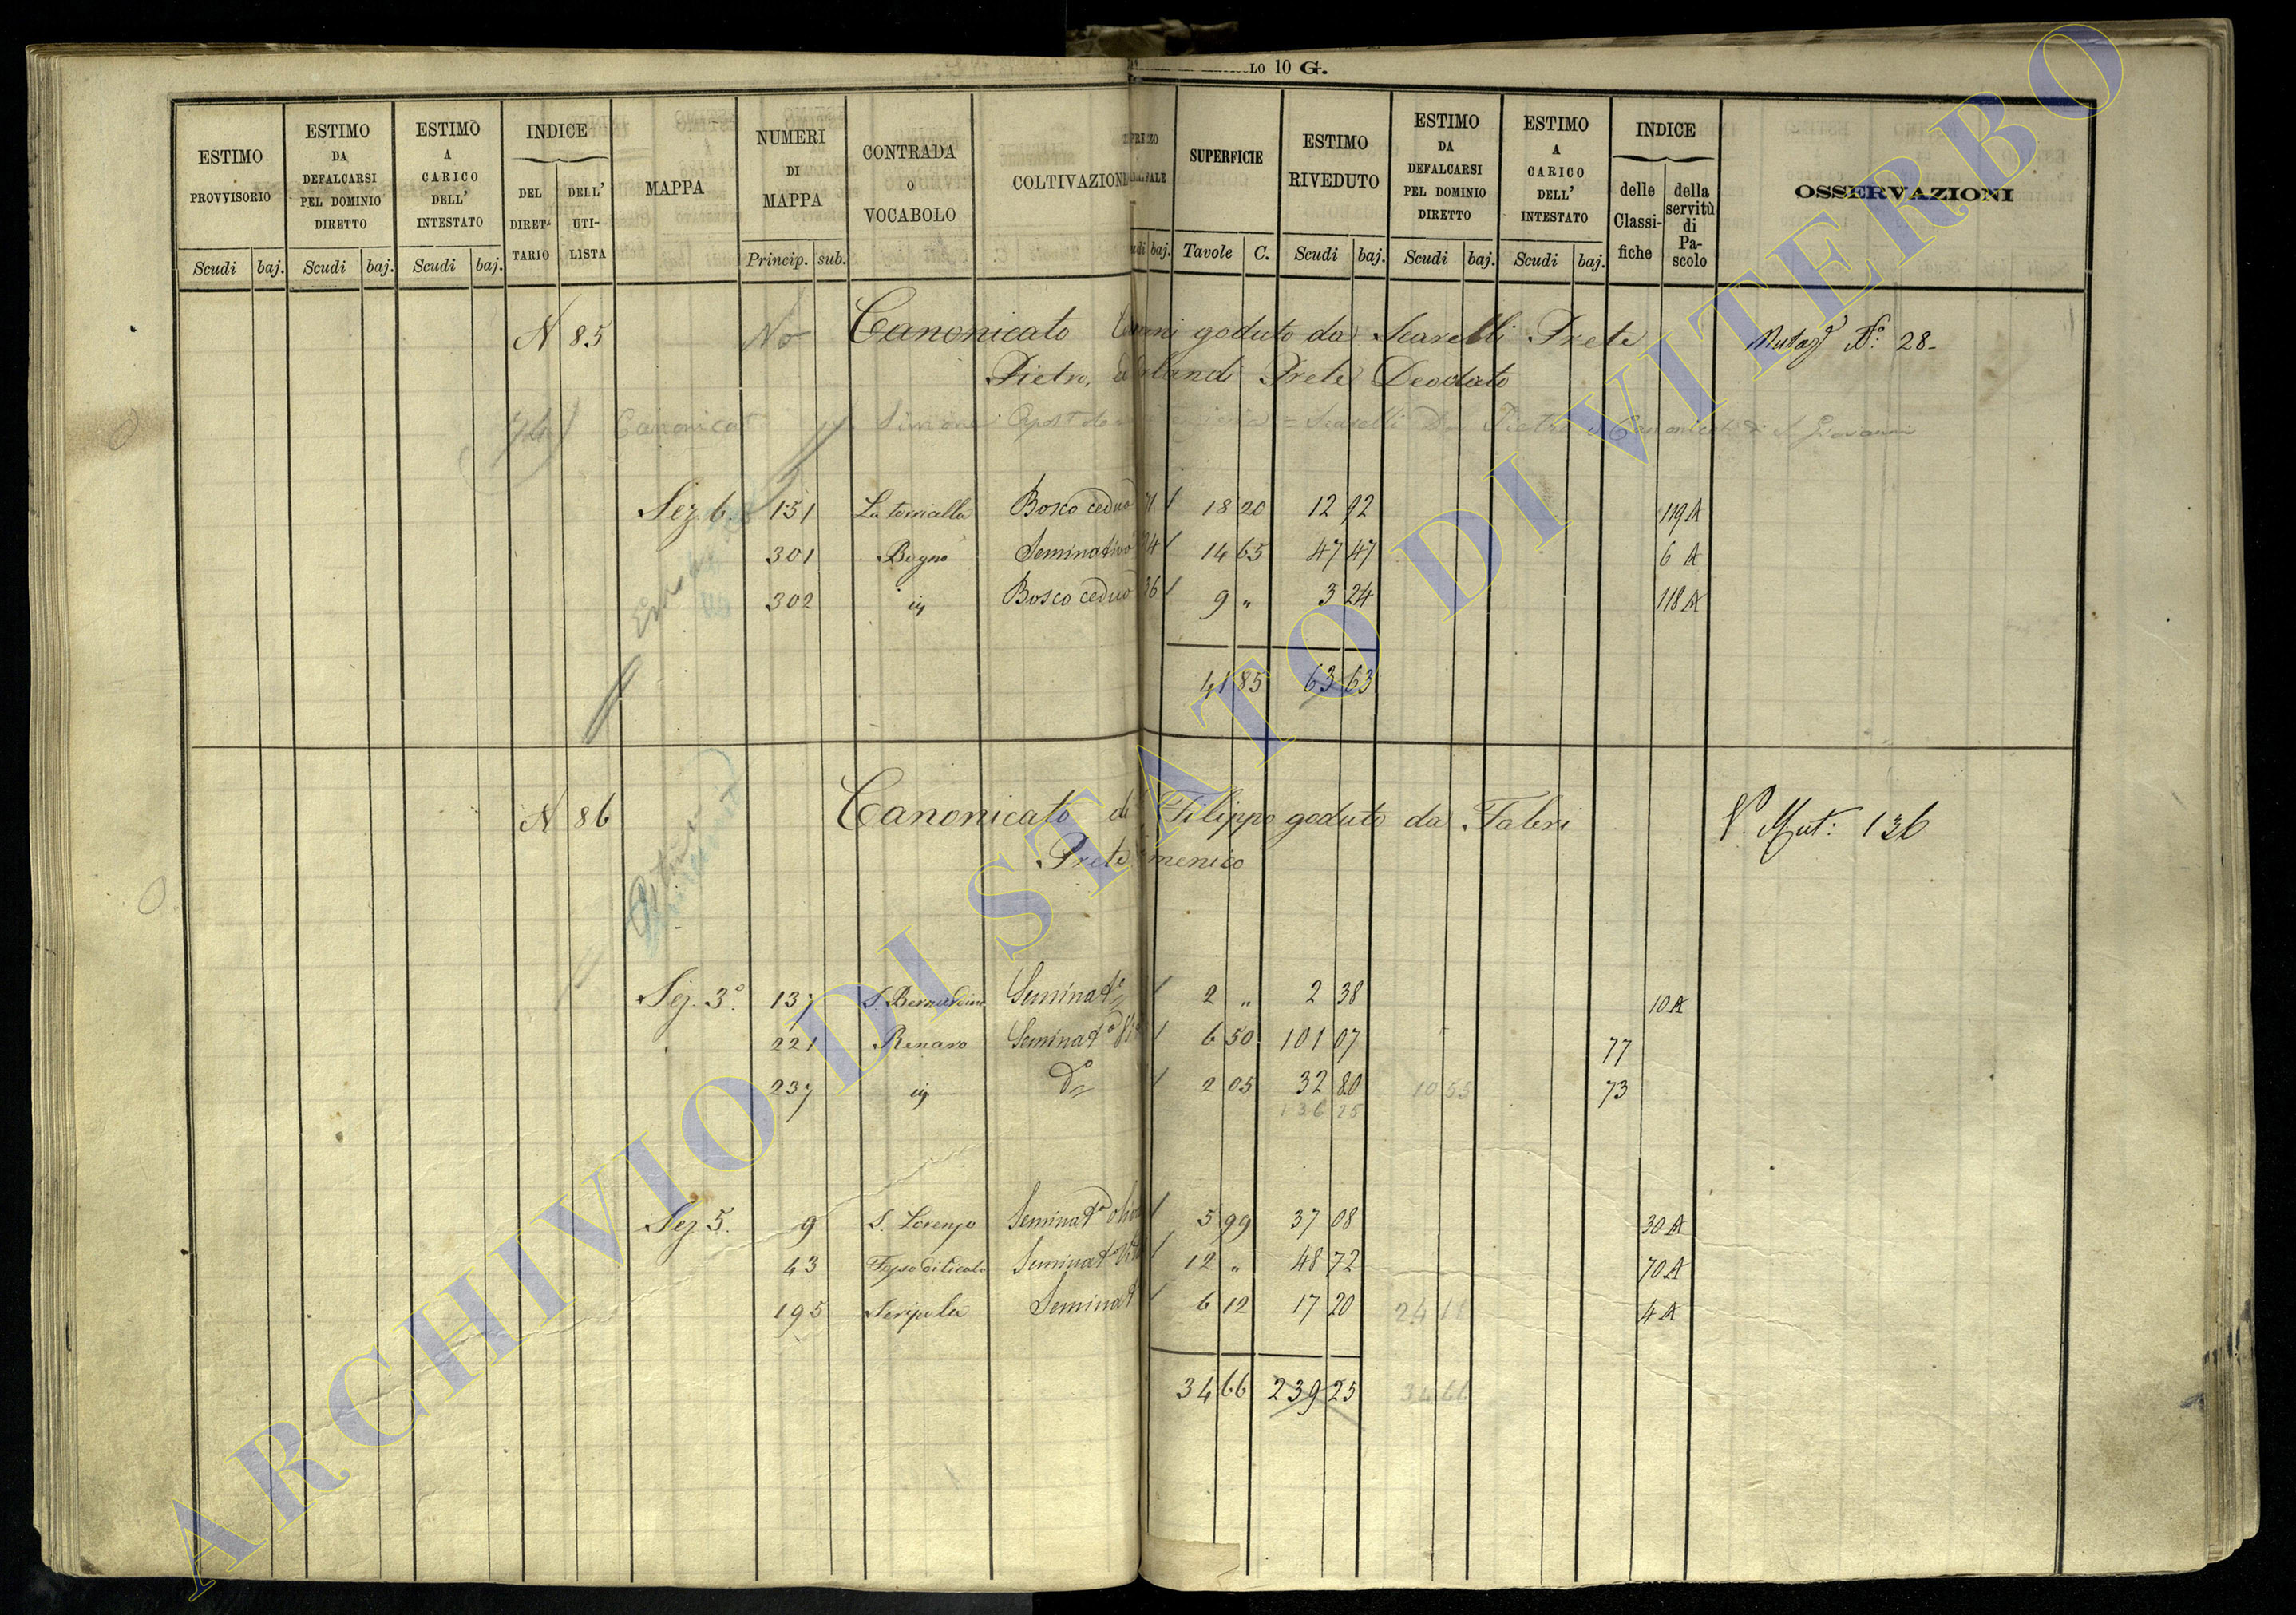 LO 10 G.
ESTIMO PROVVISORIO | ESTIMO DA DEFALCARSI PEL DOMINIO DIRETTO | ESTIMO A CARICO DELL' INTESTATO | INDICE | MAPPA | NUMERI DI MAPPA | CONTRADA O VOCABOLO | COLTIVAZIONE | SUPERFICIE | ESTIMO RIVEDUTO | ESTIMO DA DEFALCARSI PEL DOMINIO DIRETTO | ESTIMO A CARICO DELL' INTESTATO | INDICE | OSSERVAZIONI
DEL DIRET- TARIO | DELL' UTI- LISTA | delle Classi- fiche | della servitù di Pa- scolo
Scudi baj. Scudi baj. Scudi baj. Princip. sub. baj. Tavole C. Scudi baj. Scudi baj. Scudi baj.
N 85 No Canonicato goduto da Scarelli Prete Mutaz N.º 28
Pietro, Orlandi Prete Deodato
Canonicat Simone Apost Scarelli Pietro S. Giovanni
Sez. 6. 151 La torricella Bosco ceduo 18 20 12 92 119 A
301 Bagno Seminativo 14 65 47 47 6 A
302 id Bosco ceduo 36 9 " 3 24 118 A
41 85 63 63
N 86 Canonicato di Filippo goduto da Fabri V. Mut: 136
Prete menico
Sez. 3º. 137 S. Bernardino Seminatº 2 " 2 38 10 A
221 Renaro Seminatº 6 50 101 07 77
237 id dº 2 05 32 80 10 55 73
136 25
Sez 5. 9 S. Lorenzo Seminatº 5 99 37 08 30 A
43 Seminatº 12 " 48 72 70 A
195 Seripola Seminatº 6 12 17 20 24 11 4 A
34 66 239 25 34 66
ARCHIVIO DI STATO DI VITERBO